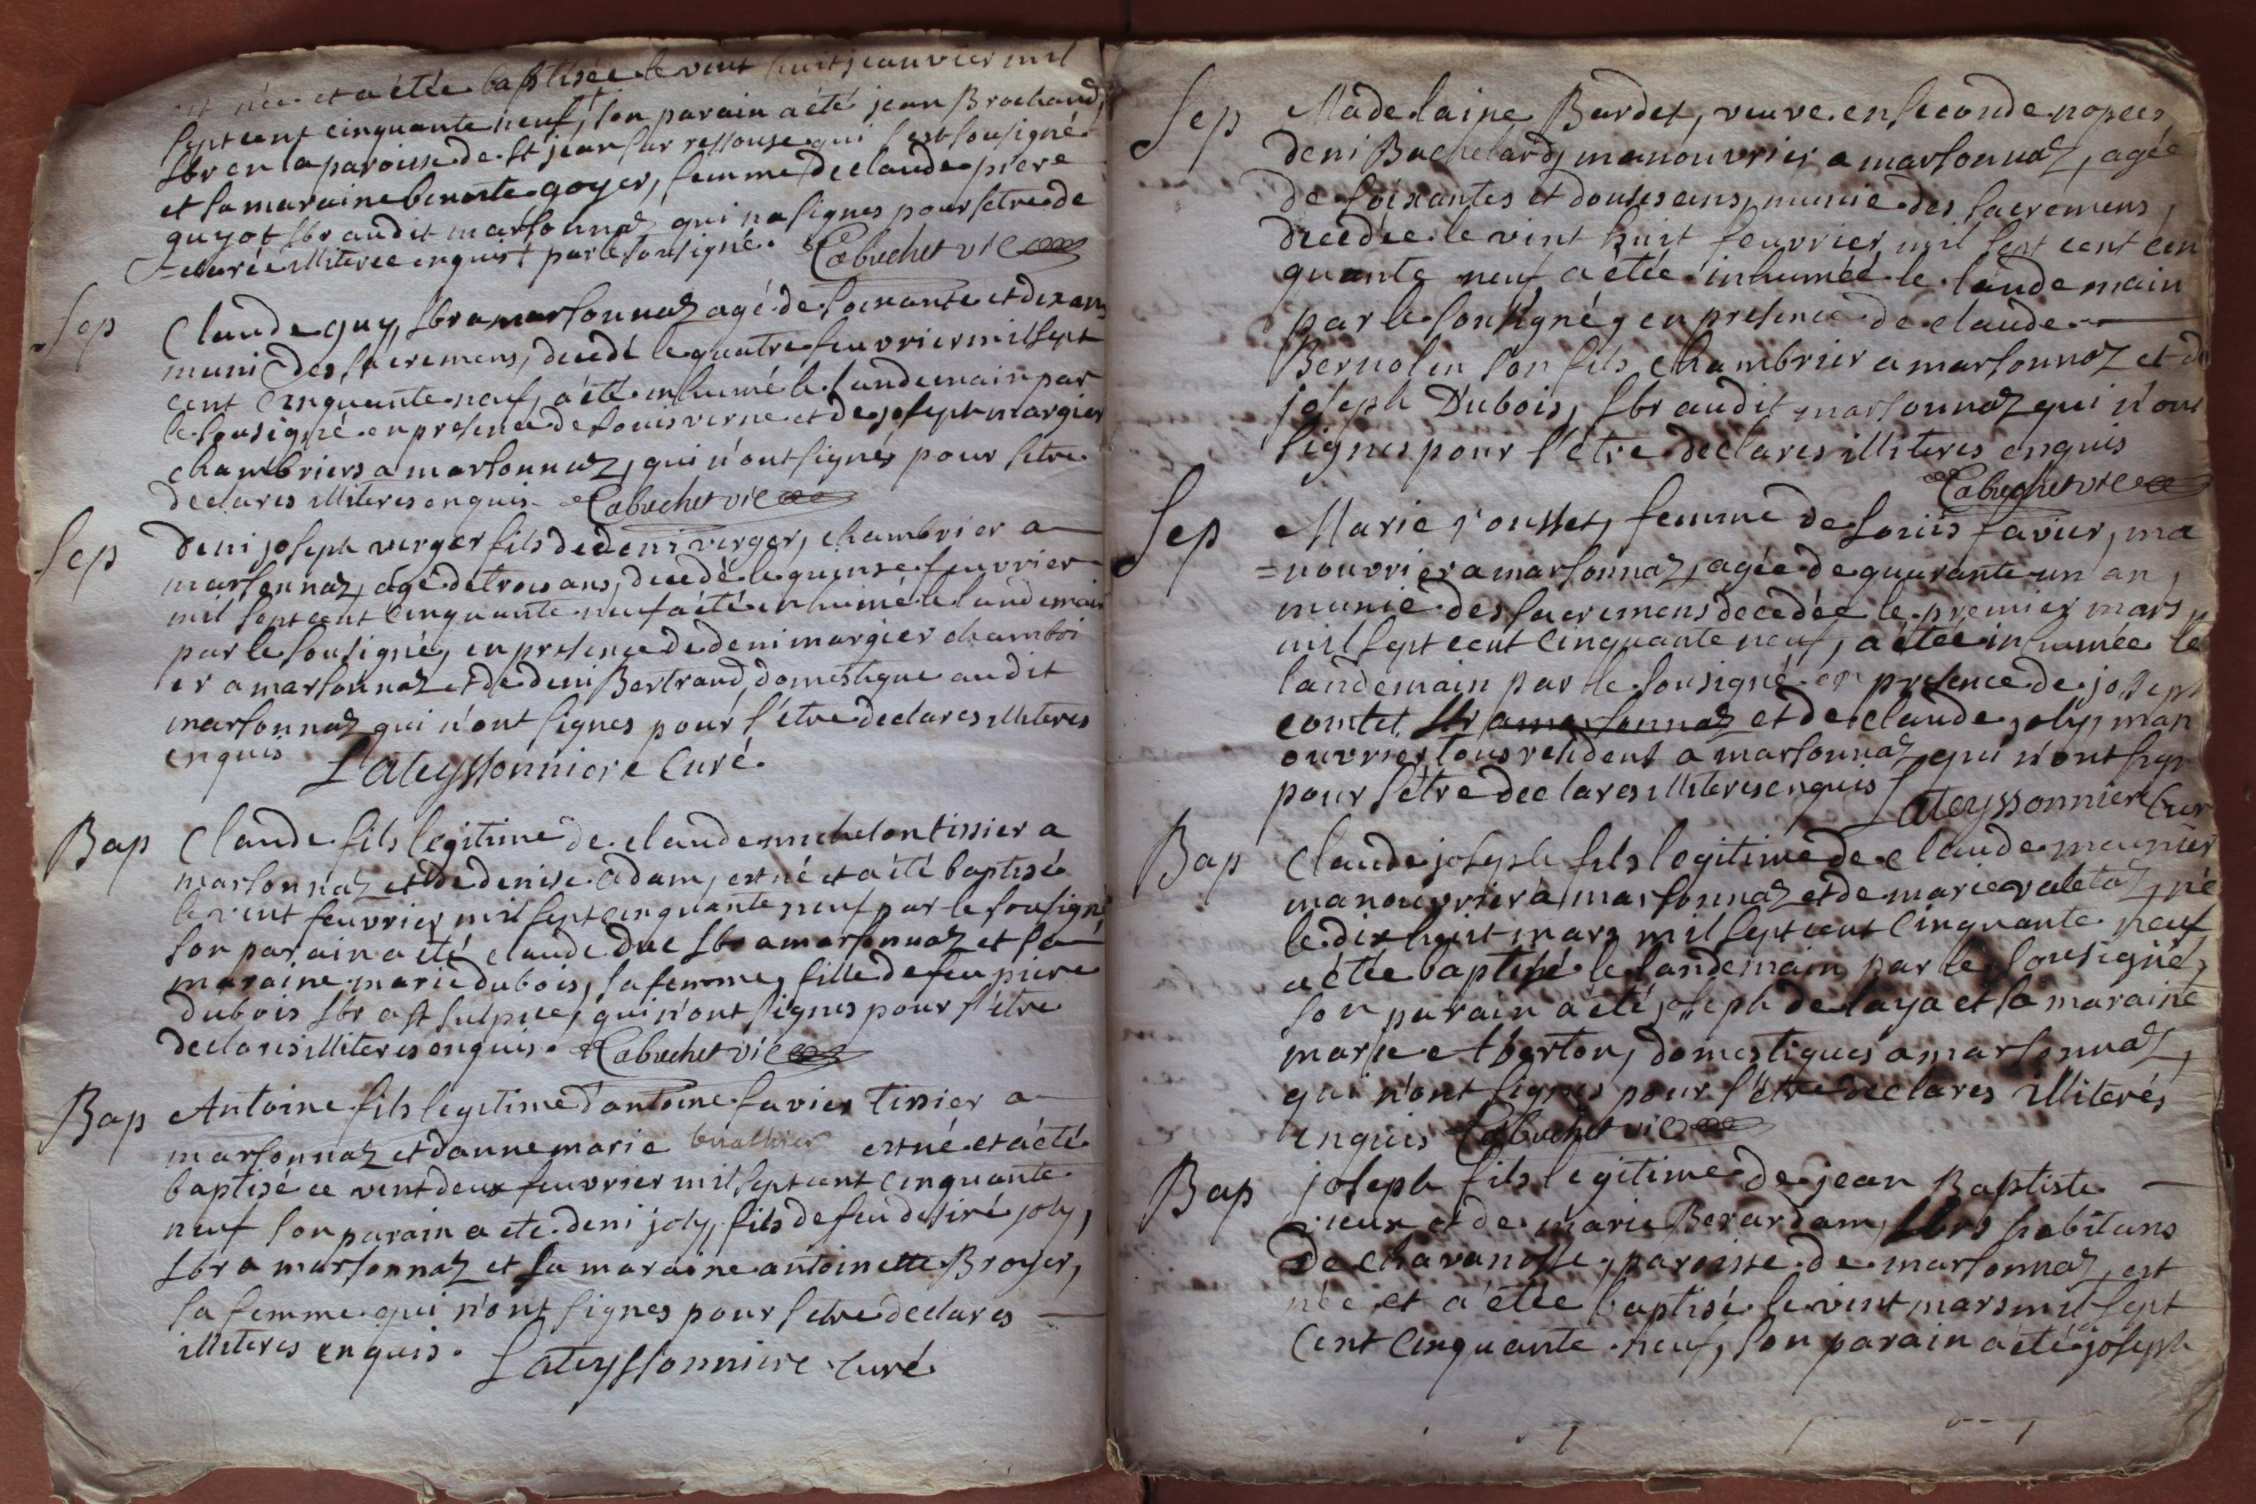 est née et a étée baptisée le vint huit jeanvier mil
sept cent cinquante neuf, son parain a été jean Brochand,
lbr en la paroisse de st jean sur ressouse qui s'est sousigné
et sa maraine benoite goyer, femme de claude piere
guyot lbr audit marsonnaz qui na signes pour setre de
=clarée illiteree enquist par le sousigné. Cabuchet vic
Sep
Claude guy, lbr a marsonnaz agé de soixante et dix ans
muni des sacremens, decedé le quatre feuvrier mil sept
cent Cinquante neuf, a été inhumé le landemain par
le sousigné en presence de louis verne et de joseph margier
chambriers a marsonnaz, qui n'ont signés pour setre
declares illiteres enquis. Cabuchet vic
Sep
deni joseph verger fils de deni verger, chambrier a
marsonnaz, agé de trois ans, decedé le quinse feuvrier
mil sept cent Cinquante neuf a été inhumé le landemain
par le sousigné, en presence de deni margier chambri
er a marsonnaz et de deni Bertrand, domestique audit
marsonnaz qui n'ont signes pour s'être declares illiteres
enquis Lateyssonniere Curé.
Bap
Claude fils legitime de claude michelon tissier a
marsonnaz et de denise adam, est né et a été baptisé
le vint feuvrier mil sept cinquante neuf par le sousigné
son parain a été claude duc lbr a marsonnaz et sa
maraine marie dubois, sa femme, fille de feu piere
dubois lbr a st sulpice, qui n'ont signes pour s'être
declares illiteres enquis. Cabuchet vic
Bap
Antoine fils legitime d'antoine favier tissier a
marsonnaz et danne marie buathier est né et a été
baptisé ce vint deux feuvrier mil sept cent cinquante
neuf son parain a eté deni joly, fils de feu desiré joly,
lbr a marsonnaz et sa maraine antoinette Broyer,
sa femme qui n'ont signes pour setre declares
illiteres enquis. Lateyssonniere Curé
Sep
Madelaine Burdet, veuve en seconde nopces
deni Bachelard, manouvrier a marsonnaz, agée
de soixantes et douses ans, munie des sacremens,
decedée le vint huit feuvrier mil sept cent cin
quante neuf, a étée inhumée le landemain
par le sousigné, en presence de claude
Bernolin son fils chambrier a marsonnaz et de
joseph Dubois, lbr audit marsonnaz qui n'ont
signes pour s'être declares illiteres enquis
Cabuchet vic
Sep
Marie rousset, femme de Louis favier, ma
=nouvrier a marsonnaz, agée de quarante un an,
munie des sacremens decedée le premier mars
mil sept cent Cinquante neuf, a étée inhumée le
landemain par le sousigné en presence de joseph
comtet lbr a marsonnaz et de claude joly, man
ouvrier tous resident a marsonnaz qui n'ont sign
pour s'être declares illiteres enquis Lateyssonniere Cur
Bap
Claude joseph fils legitime de claude meunier
manouvrier a marsonnaz et de marie valetaz, né
le dix huit mars mil sept cent Cinquante neuf
a étée baptisé le landemain par le sousigné,
son parain a été joseph de laya et sa maraine
marie Alberton, domestiques a marsonnaz,
qui n'ont signes pour s'être declares illiterés
enquis Cabuchet vic
Bap
joseph fils legitime de jean Baptiste
vieux et de marie Berardam, lbrs habitans
de chavanosse, paroisse de marsonnaz, est
née et a étée baptisé le vint mars mil sept
Cent Cinquante neuf, son parain a été joseph